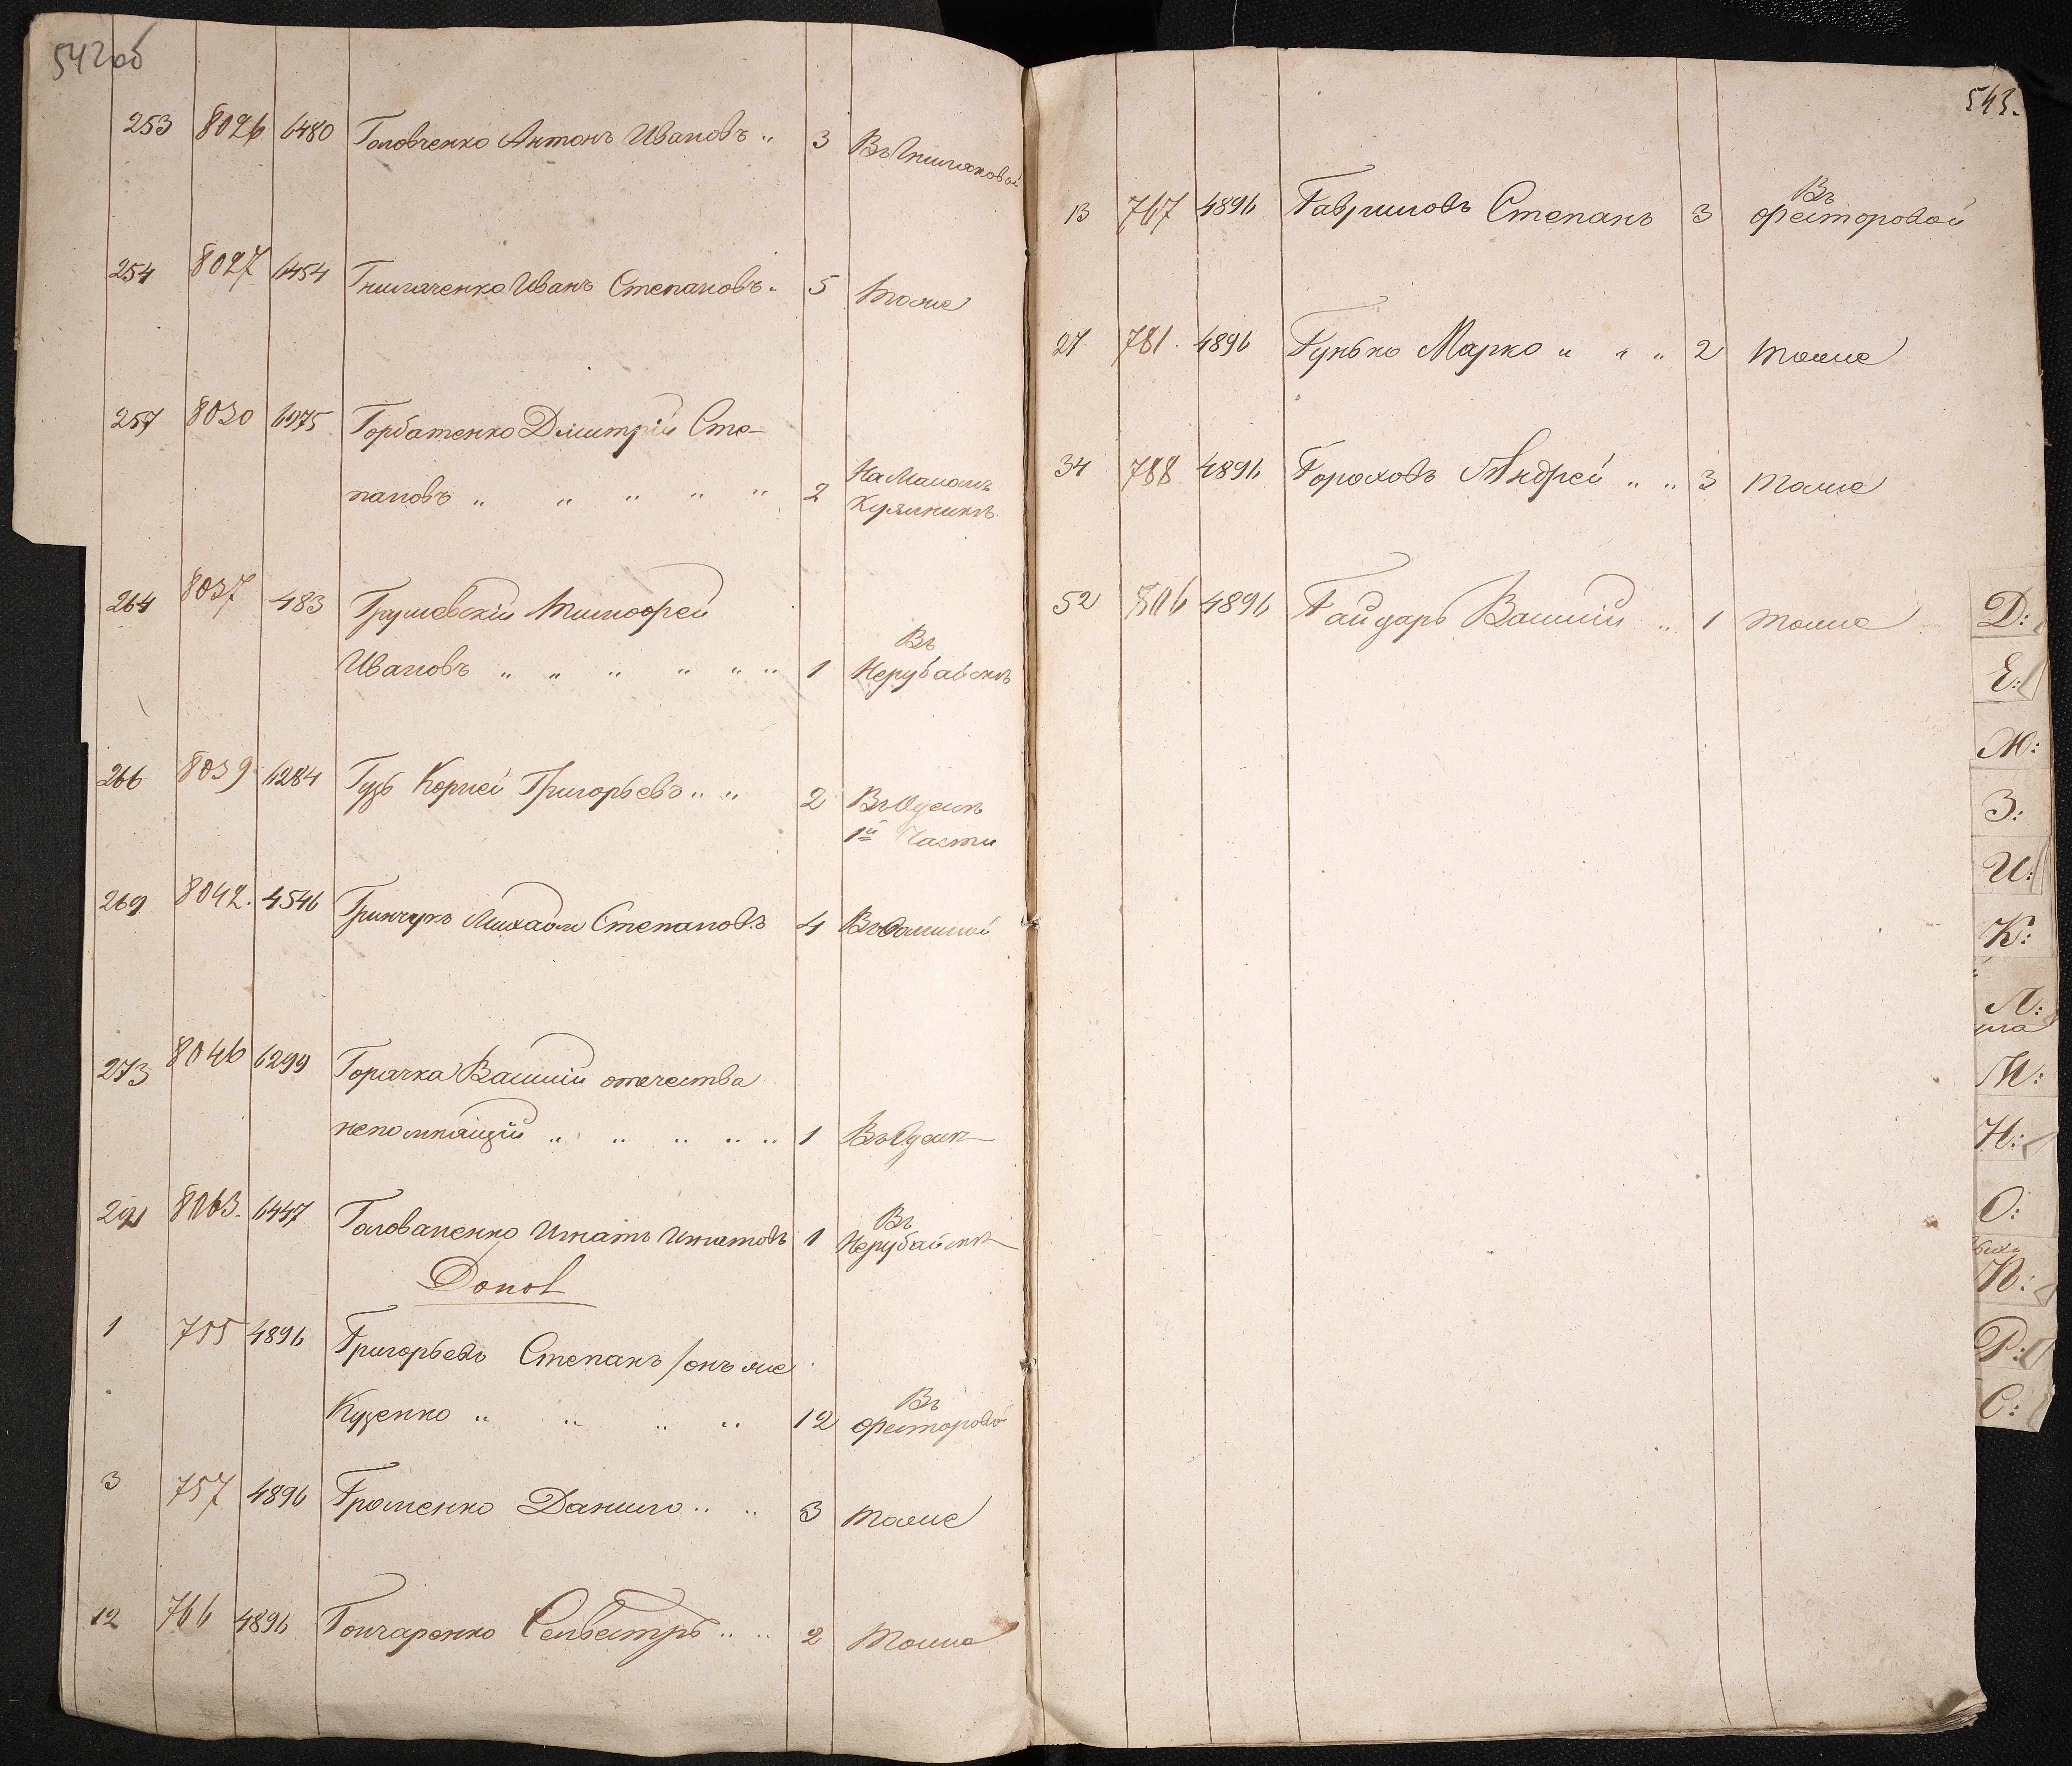 542об
253 8026 6480 Головченко Антонъ Ивановъ „ 3 Въ Гниляковой
254 8027 6454 Гнилаченко Иванъ Степановъ „ 5 тоже
257 8030 6975 Горбатенко Дмитрій Сте-
пановъ „ „ „ „ „ 2 На Маломъ
Куяльникѣ
264 8037 483 Грушевскій Тимофей
Ивановъ „ „ „ „ „ „ 1 Въ
Нерубайскѣ
266 8039 6284 Гузь Корней Григорьевъ „ „ 2 Въ Одессѣ
1й Части
269 8042. 4546 Гринчукъ Михаилъ Степановъ 4 Въ
273 8046 6299 Горачка Василій отечества
непомнящій „ „ „ „ „ 1 Въ Одессѣ
8063. 6447 Голованенко Игнатъ Игнатовъ 1 Въ
Нерубайскѣ
Допол
1 755 4896 Григорьевъ Степанъ /онъ же
Куценко „ „ „ „ 12 Въ
Фесторовой
3 757 4896 Громенко Данило „ „ 3 тоже
12 766 4896 Гончаренко Селвестръ „ „ 2 тоже
543.
13 767 4896 Гавриловъ Степанъ 3 Въ
Фесторовой
27 781. 4896 Гунько Марко „ „ „ 2 тоже
34 788. 4896 Гороховъ Андрей „ „ 3 тоже
52 806 4896 Гайдаръ Василій „ 1 тоже
Д:
Е:
Ж:
З:
И:
К:
Л:
М:
Н:
О:
П:
Р:
С: